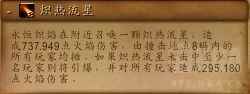 炽热流星
永恒炽焰在附近召唤一颗炽热流星,造
成737,949点火焰伤害,由撞击地点8码内的
所有玩家均摊。如果炽热流星未击中至少一
名玩家则将引爆,并对所有玩家造成295,180
点火焰伤害。